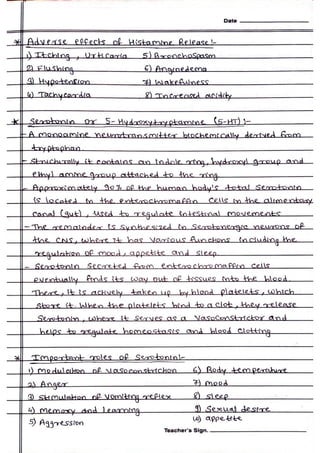 Date
* Adverse effects of Histamine Release :-
1) Itching, Urticaria 5) Bronchospasm
2) Flushing 6) Angioedema
3) Hypotension 7) Wakefulness
4) Tachycardia 8) Increased acidity
* Serotonin or 5-Hydroxytryptamine (5-HT) :-
- A monoamine neurotransmitter biochemically derived from
tryptophan
- Structurally it contains an Indole ring, hydroxyl group and
ethyl amine group attached to the ring.
- Approximately 90% of the human body's total Serotonin
is located in the enterochromaffin cells in the alimentary
canal (gut), used to regulate intestinal movements
- The remainder is synthesized in Serotonergic neurons of
the CNS, where it has various functions including the
regulation of mood, appetite and sleep
- Serotonin Secreted from enterochromaffin cells
eventually finds its way out of tissues into the blood.
There, it is actively taken up by blood platelets, which
store it. When the platelets bind to a clot, they release
Serotonin, where it serves as a vasoconstrictor and
helps to regulate homeostasis and blood clotting
* Important roles of Serotonin:-
1) modulation of vasoconstriction 6) Body temperature
2) Anger 7) mood
3) stimulation of vomiting reflex 8) sleep
4) memory and learning 9) Sexual desire
5) Aggression 10) appetite
Teacher's Sign.